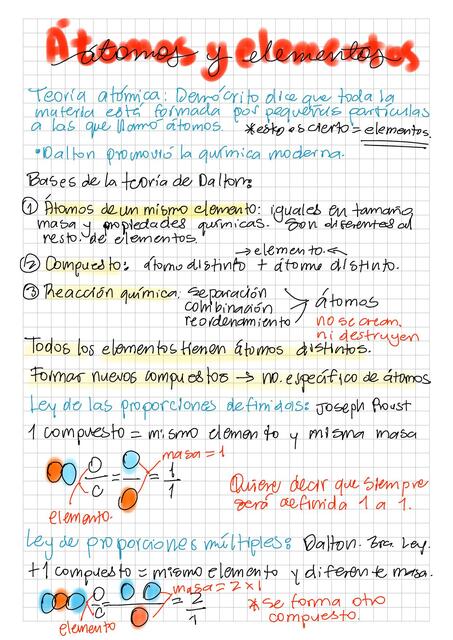 Átomos y elementos
Teoría atómica: Demócrito dice que toda la
materia está formada por pequeñas partículas
a las que llamó átomos. *esto es cierto = elementos.
• Dalton promovió la química moderna.
Bases de la teoría de Dalton:
① Átomos de un mismo elemento: iguales en tamaño,
masa y propiedades químicas. Son diferentes al
resto de elementos.
→ elemento ←
② Compuesto: átomo distinto + átomo distinto.
③ Reacción química: separación
combinación
reordenamiento
átomos
no se crean
ni destruyen
Todos los elementos tienen átomos distintos.
Formar nuevos compuestos → no. específico de átomos
Ley de las proporciones definidas: Joseph Proust
1 compuesto = mismo elemento y misma masa
masa = 1
O/C = = 1/1
elemento.
Quiere decir que siempre
será definida 1 a 1.
Ley de proporciones múltiples: Dalton. 3ra. Ley.
+1 compuesto = mismo elemento y diferente masa.
masa = 2 x 1
O/C = = 2/1
elemento
*se forma otro
compuesto.